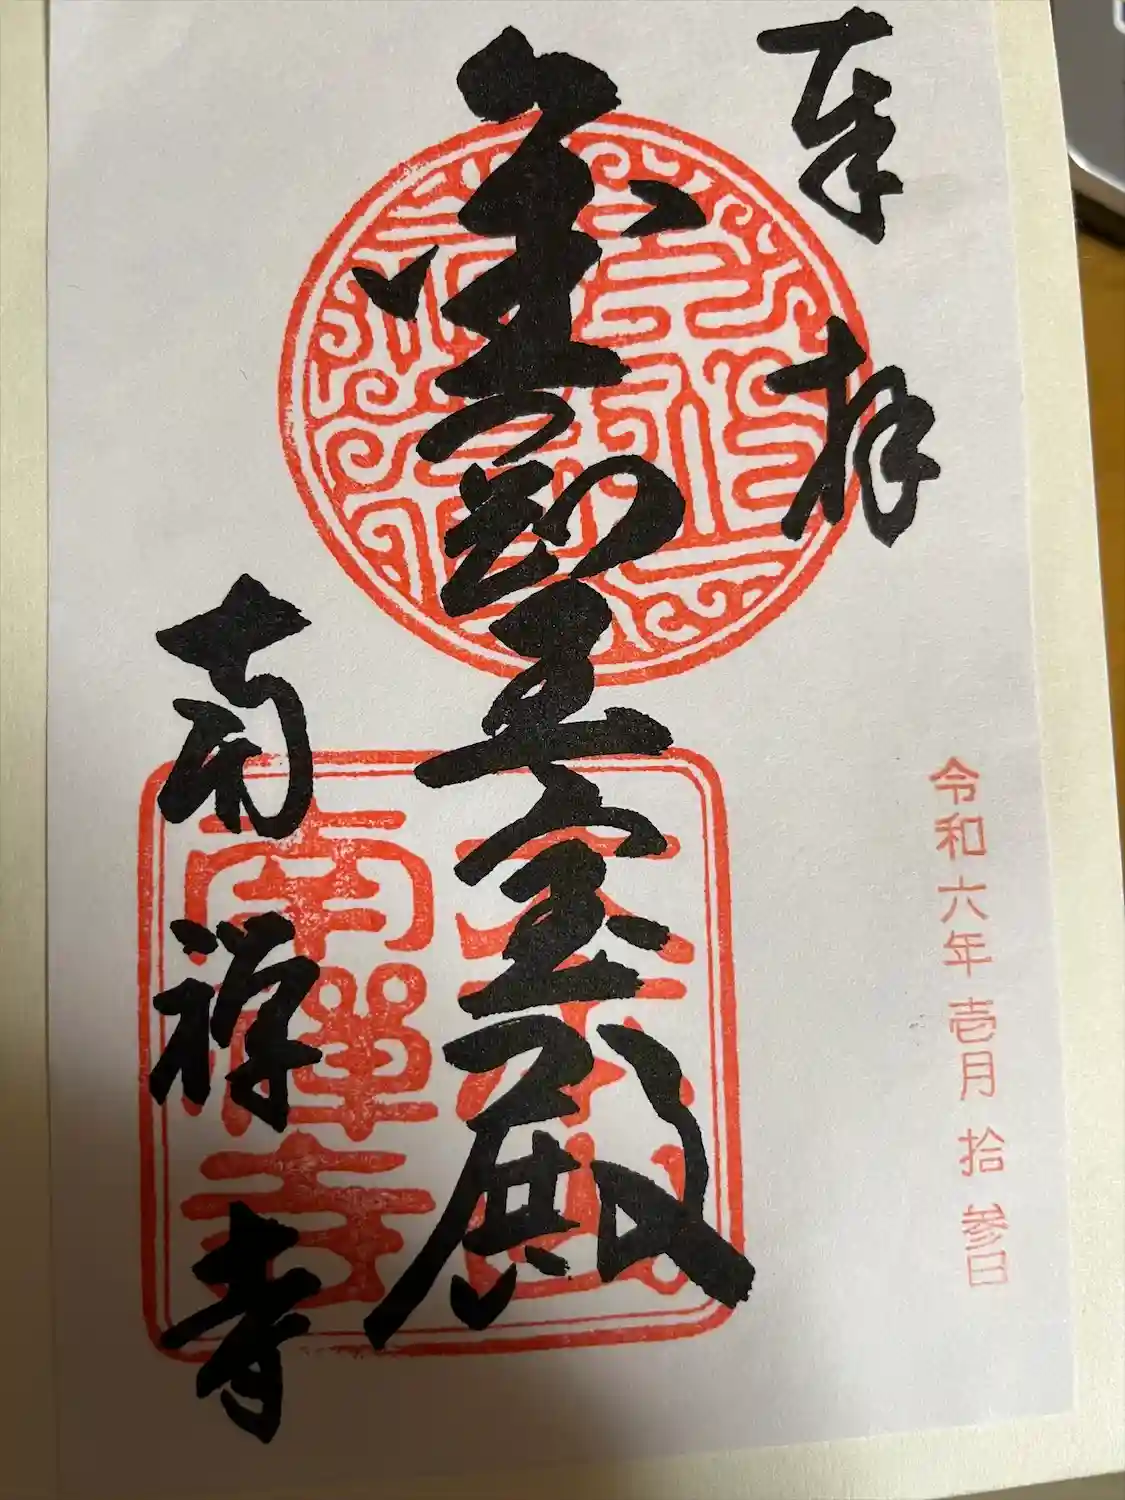 奉拝
令和六年壱月拾参日
金剛王宝殿
南禅寺
南禅寺